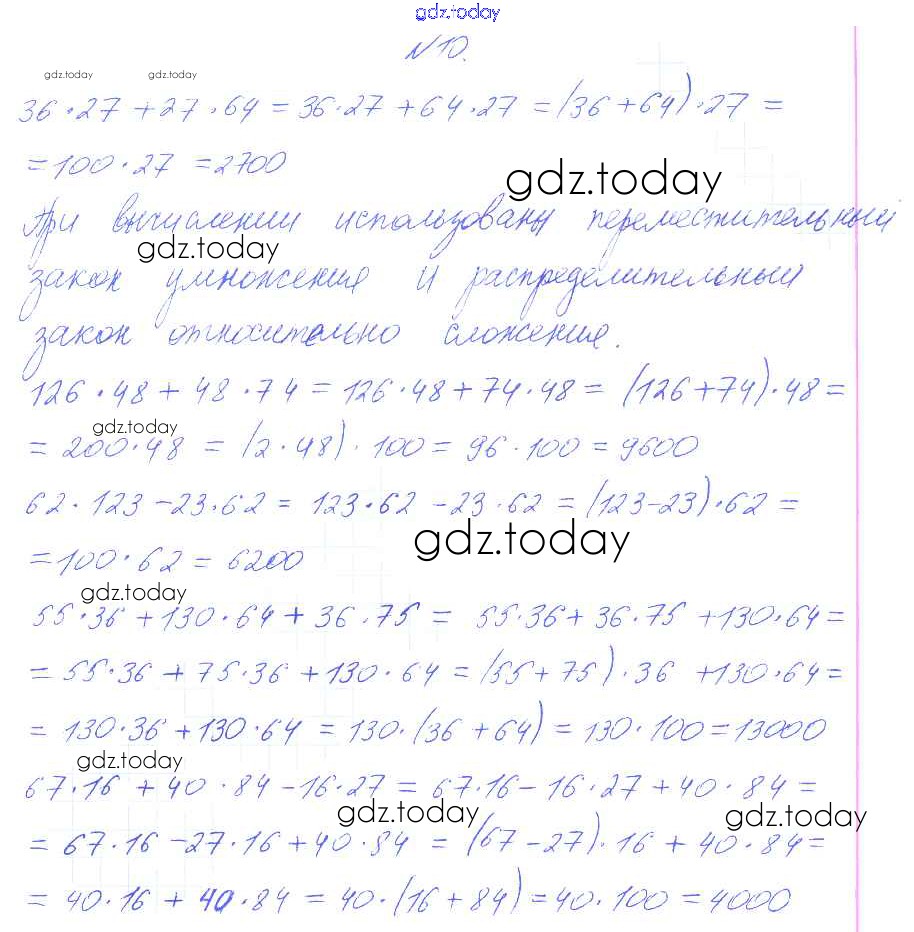 gdz.today
N10.
gdz.today gdz.today
36·27 + 27·64 = 36·27 + 64·27 = (36 + 64)·27 =
= 100·27 = 2700
gdz.today
При вычислении использованы переместительный
gdz.today
закон умножения и распределительный
закон относительно сложения.
126·48 + 48·74 = 126·48 + 74·48 = (126 + 74)·48 =
gdz.today
= 200·48 = (2·48)·100 = 96·100 = 9600
62·123 - 23·62 = 123·62 - 23·62 = (123 - 23)·62 =
gdz.today
= 100·62 = 6200
gdz.today
55·36 + 130·64 + 36·75 = 55·36 + 36·75 + 130·64 =
= 55·36 + 75·36 + 130·64 = (55 + 75)·36 + 130·64 =
= 130·36 + 130·64 = 130·(36 + 64) = 130·100 = 13000
gdz.today
67·16 + 40·84 - 16·27 = 67·16 - 16·27 + 40·84 =
gdz.today gdz.today
= 67·16 - 27·16 + 40·84 = (67 - 27)·16 + 40·84 =
= 40·16 + 40·84 = 40·(16 + 84) = 40·100 = 4000